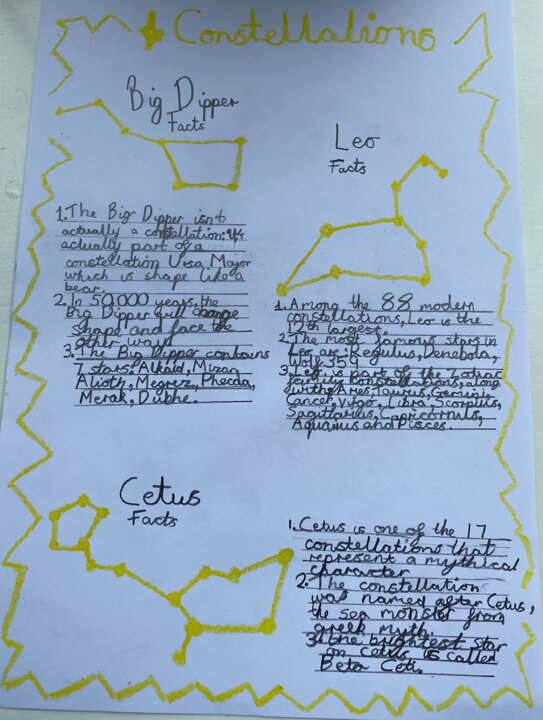 Constellations
Big Dipper
Facts
1. The Big Dipper isn't
actually a constellation: It's
actually part of a
constellation Ursa Major
which is shape like a
bear.
2. In 50,000 years, the
Big Dipper will change
shape and face the
other way.
3. The Big Dipper contains
7 stars: Alkaid, Mizar,
Alioth, Megrez, Phecda,
Merak, Dubhe.
Leo
Facts
1. Among the 88 modern
constellations, Leo is the
12th largest.
2. The most famous stars in
Leo are: Regulus, Denebola,
Wolf 359
3. Leo is part of the Zodiac
family constellations, along
with: Aries, Taurus, Gemini,
Cancer, Virgo, Libra, Scorpius,
Sagittarius, Capricornus,
Aquirius and Pisces.
Cetus
Facts
1. Cetus is one of the 17
constellations that
represent a mythical
character
2. The constellation
was named after Cetus,
the sea monster from
greek myth.
3. The brightest star
on cetus is called
Beta Ceti.